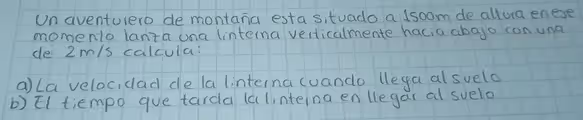 Un aventurero de montaña esta situado a 1500m de altura en ese
momento lanza una linterna verticalmente hacia abajo con una
de 2m/s calcula:
a) La velocidad de la linterna cuando llega al suelo
b) El tiempo que tarda la linterna en llegar al suelo